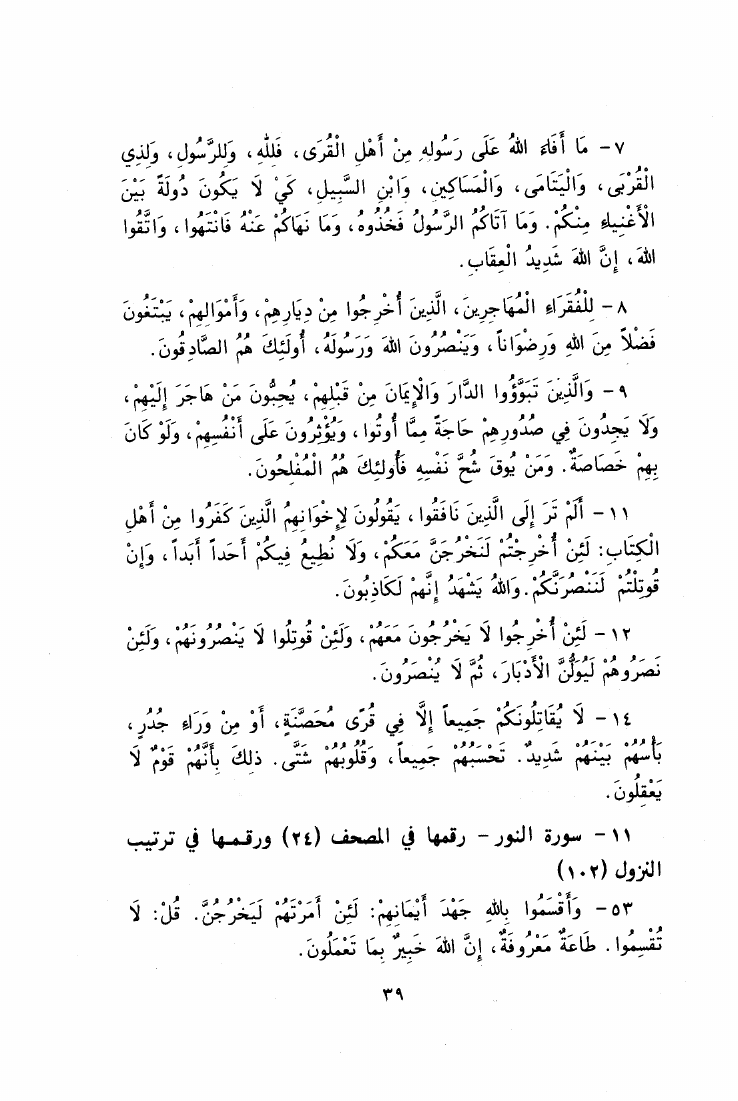 ٧ – مَا أَفَاءَ اللهُ عَلَى رَسُولِهِ مِنْ أَهْلِ الْقُرَى، فَلِلّهِ، وَلِلرَّسُولِ، وَلِذِي
الْقُرْبَى، وَالْيَتَامَى، وَالْمَسَاكِينِ، وَابْنِ السَّبِيلِ، كَيْ لَا يَكُونَ دُولَةً بَيْنَ
الْأَغْنِيَاءِ مِنْكُمْ. وَمَا آتَاكُمُ الرَّسُولُ فَخُذُوهُ، وَمَا نَهَاكُمْ عَنْهُ فَانْتَهُوا، وَاتَّقُوا
اللهَ، إِنَّ اللهَ شَدِيدُ الْعِقَابِ.
٨ – لِلْفُقَرَاءِ الْمُهَاجِرِينَ، الَّذِينَ أُخْرِجُوا مِنْ دِيَارِهِمْ، وَأَمْوَالِهِمْ، يَبْتَغُونَ
فَضْلاً مِنَ اللهِ وَرِضْوَاناً، وَيَنْصُرُونَ اللهَ وَرَسُولَهُ، أُولَئِكَ هُمُ الصَّادِقُونَ.
٩ – وَالَّذِينَ تَبَوَّؤُوا الدَّارَ وَالْإِيمَانَ مِنْ قَبْلِهِمْ، يُحِبُّونَ مَنْ هَاجَرَ إِلَيْهِمْ،
وَلَا يَجِدُونَ فِي صُدُورِهِمْ حَاجَةً مِمَّا أُوتُوا، وَيُؤْثِرُونَ عَلَى أَنْفُسِهِمْ، وَلَوْ كَانَ
بِهِمْ خَصَاصَةٌ. وَمَنْ يُوقَ شُحَّ نَفْسِهِ فَأُولئِكَ هُمُ الْمُفْلِحُونَ.
١١ – أَلَمْ تَرَ إِلَى الَّذِينَ نَافَقُوا، يَقُولُونَ لِإِخْوَانِهِمُ الَّذِينَ كَفَرُوا مِنْ أَهْلِ
الْكِتَابِ: لَئِنْ أُخْرِجْتُمْ لَنَخْرُجَنَّ مَعَكُمْ، وَلَا نُطِيعُ فِيكُمْ أَحَداً أَبَداً، وَإِنْ
قُوتِلْتُمْ لَنَنْصُرَنَّكُمْ. وَاللهُ يَشْهَدُ إِنَّهُمْ لَكَاذِبُونَ.
١٢ – لَئِنْ أُخْرِجُوا لَا يَخْرُجُونَ مَعَهُمْ، وَلَئِنْ قُوتِلُوا لَا يَنْصُرُونَهُمْ، وَلَئِنْ
نَصَرُوهُمْ لَيُوَلُّنَّ الْأَدْبَارَ، ثُمَّ لَا يُنْصَرُونَ.
١٤ – لَا يُقَاتِلُونَكُمْ جَمِيعاً إِلَّا فِي قُرًى مُحَصَّنَةٍ، أَوْ مِنْ وَرَاءِ جُدُرٍ،
بَأْسُهُمْ بَيْنَهُمْ شَدِيدٌ. تَحْسَبُهُمْ جَمِيعاً، وَقُلُوبُهُمْ شَتَّى. ذلِكَ بِأَنَّهُمْ قَوْمٌ لَا
يَعْقِلُونَ.
١١ – سورة النور – رقمها في المصحف (٢٤) ورقمها في ترتيب
النزول (١٠٢)
٥٣ – وَأَقْسَمُوا بِاللهِ جَهْدَ أَيْمَانِهِمْ: لَئِنْ أَمَرْتَهُمْ لَيَخْرُجُنَّ. قُلْ: لَا
تُقْسِمُوا. طَاعَةٌ مَعْرُوفَةٌ، إِنَّ اللهَ خَبِيرٌ بِمَا تَعْمَلُونَ.
٣٩